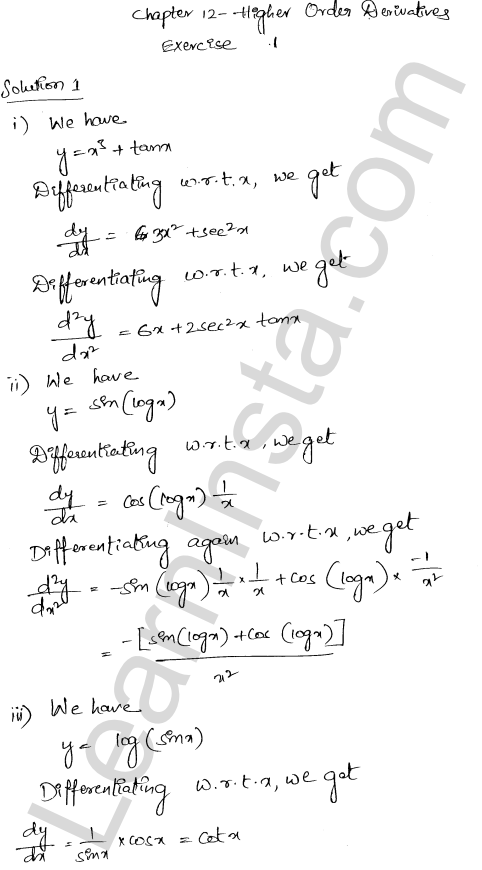 Chapter 12 - Higher Order Derivatives
Exercise .1
Solution 1
i) We have
y = x³ + tanx
Differentiating w.r.t.x, we get
dy/dx = 3x² + sec²x
Differentiating w.r.t.x, we get
d²y/dx² = 6x + 2sec²x tanx
ii) We have
y = sin(logx)
Differentiating w.r.t.x, we get
dy/dx = cos(logx) 1/x
Differentiating again w.r.t.x, we get
d²y/dx² = -sin(logx) 1/x × 1/x + cos (logx) × -1/x²
= -[sin(logx) + cos (logx)]/x²
iii) We have
y = log(sinx)
Differentiating w.r.t.x, we get
dy/dx = 1/sinx × cosx = cotx
LearnInsta.com